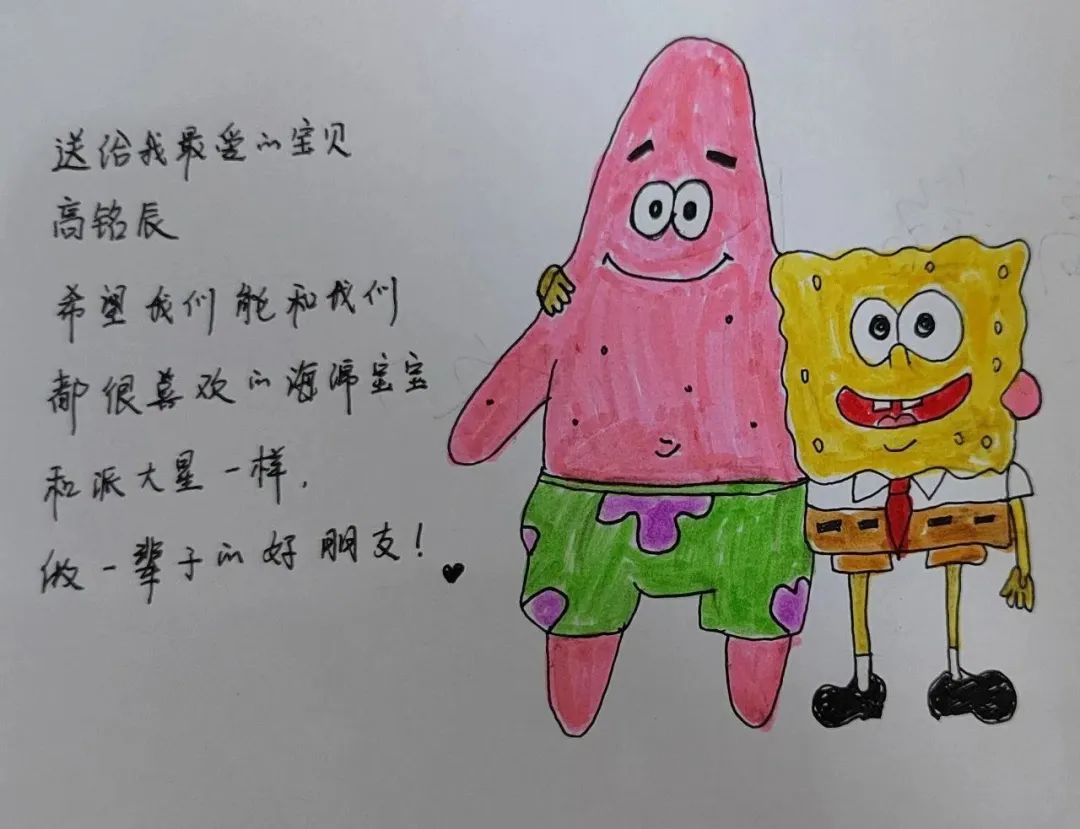 送给我最爱的宝贝
高铭辰
希望我们能和我们
都很喜欢的海绵宝宝
和派大星一样，
做一辈子的好朋友！